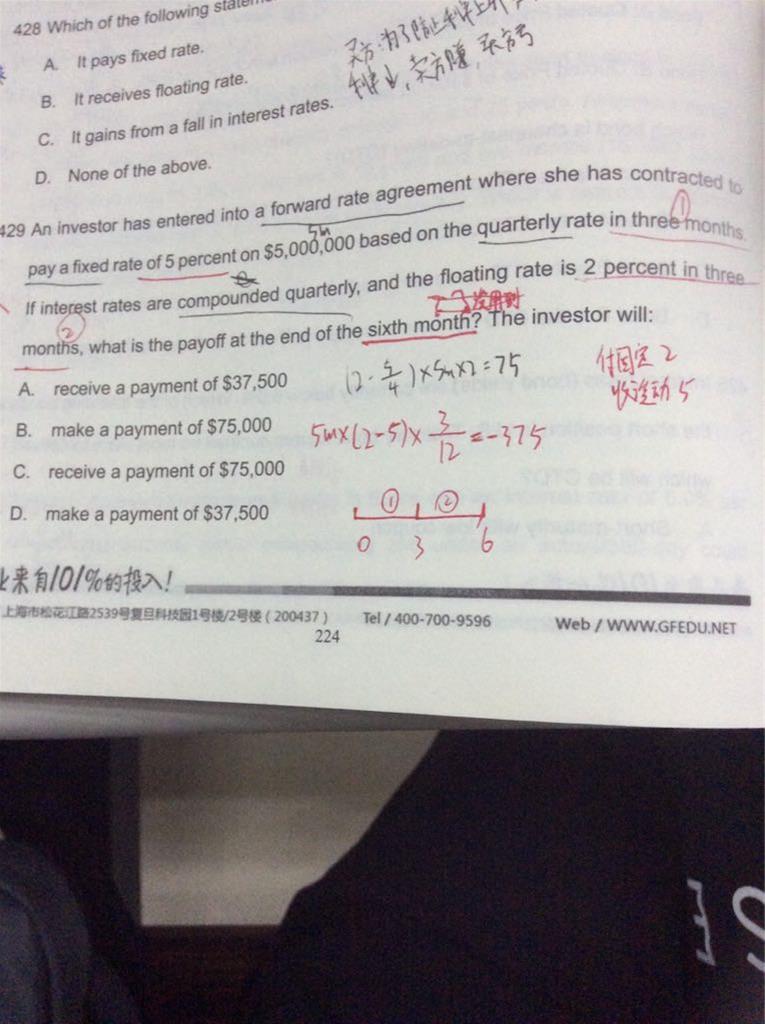 428 Which of the following
买方:为了防止利率上升
利率↓,卖方赚,买方亏
A. It pays fixed rate.
B. It receives floating rate.
C. It gains from a fall in interest rates.
D. None of the above.
429 An investor has entered into a forward rate agreement where she has contracted to
①
5m
pay a fixed rate of 5 percent on $5,000,000 based on the quarterly rate in three months.
If interest rates are compounded quarterly, and the floating rate is 2 percent in three
②
没用到
months, what is the payoff at the end of the sixth month? The investor will:
A. receive a payment of $37,500
×5m×2=75
付固定 2
收浮动 5
B. make a payment of $75,000
5m×(2-5)×3/12=-375
C. receive a payment of $75,000
D. make a payment of $37,500
① ②
0 3 6
来自101%的投入!
上海市松花江路2539号复旦科技园1号楼/2号楼(200437) Tel / 400-700-9596 Web / WWW.GFEDU.NET
224